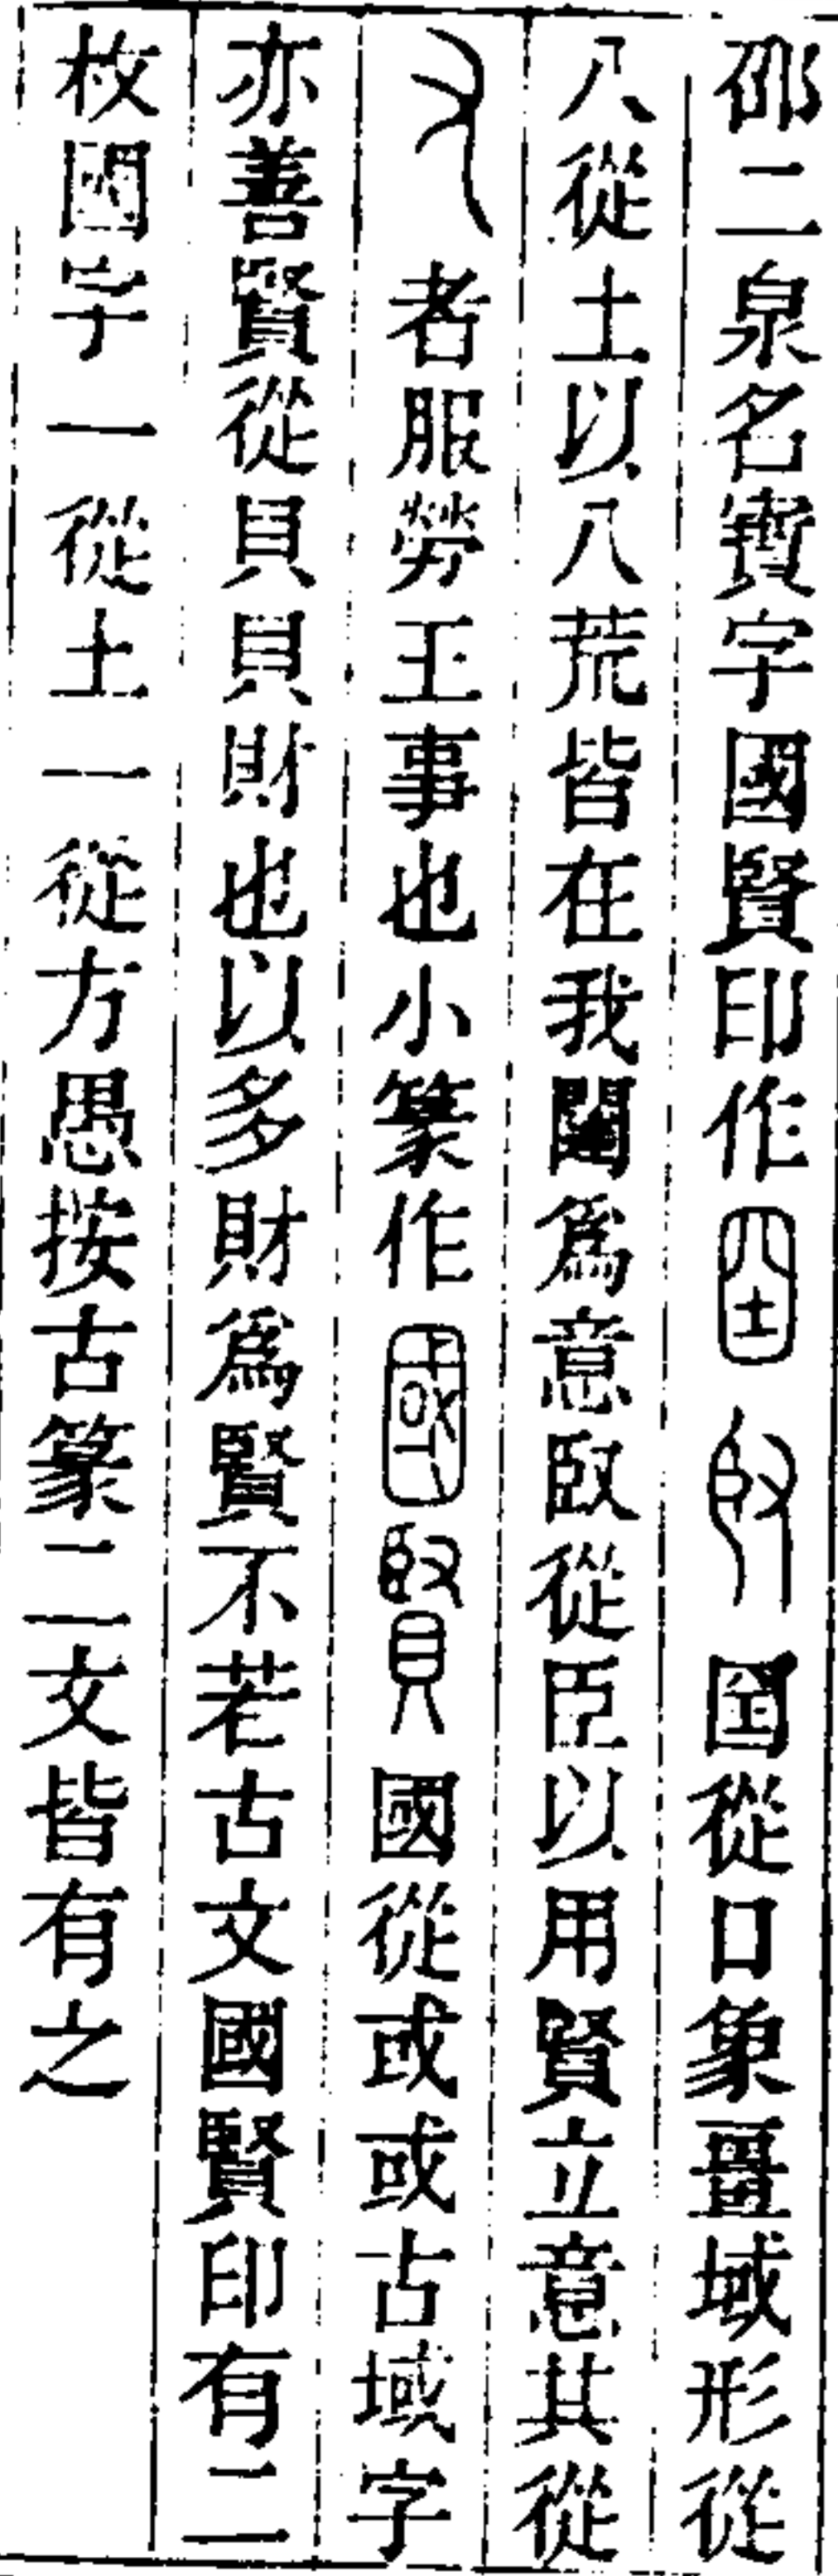 邵二泉名寶字國賢印作𡆿臤国從口象畺域形從
八從土以八荒皆在我闥爲意臤從臣以用賢立意其從
又者服勞王事也小篆作國賢國從或或古域字
亦善賢從貝貝財也以多財爲賢不若古文國賢印有二
枚國字一從土一從方愚按古篆二文皆有之